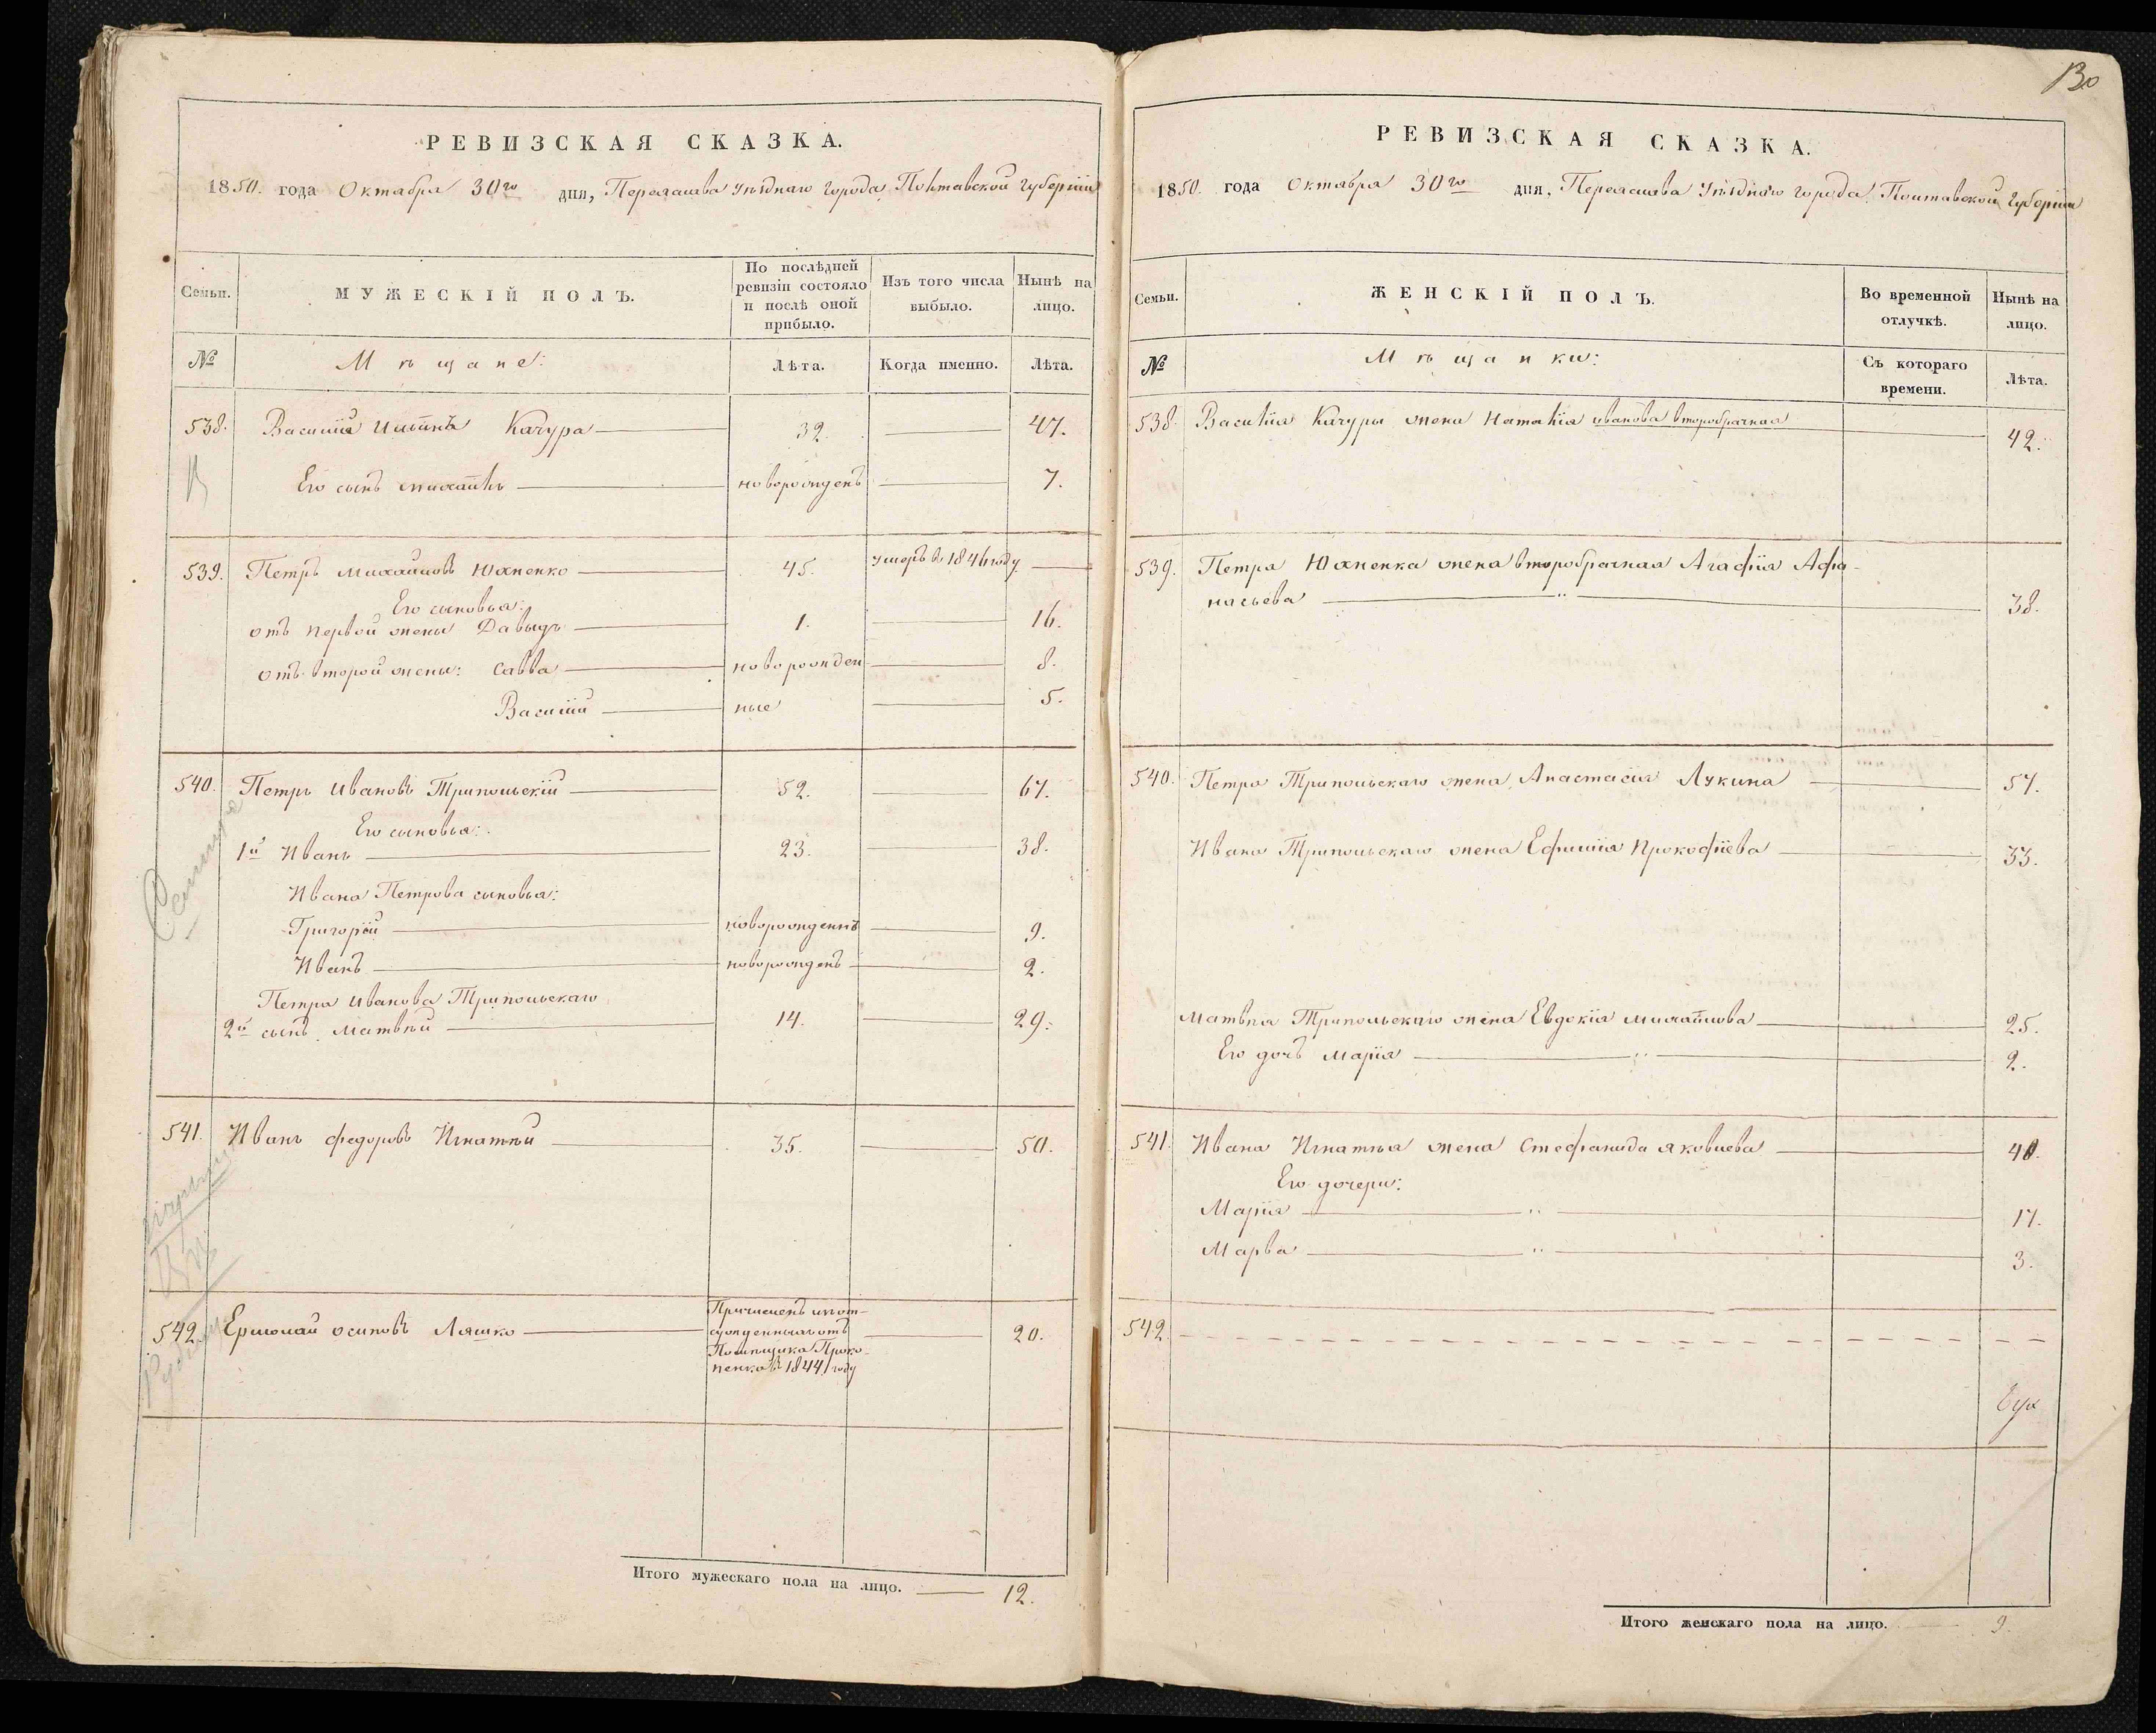 130
РЕВИЗСКАЯ СКАЗКА.
1850. года Октября 30го дня, Переяслава уѣзднаго города, Полтавской губерніи
Семьи.
МУЖЕСКІЙ ПОЛЪ.
По послѣдней ревизіи состояло и послѣ оной прибыло.
Изъ того числа выбыло.
Нынѣ на лицо.
№
Мѣщане:
Лѣта.
Когда именно.
Лѣта.
538. Василій Ильинъ Качура 32. 47.
Его сынъ Михаилъ новорожденъ 7.
539. Петръ Михайловъ Юхненко 45. умеръ в 1846 году
Его сыновья:
отъ первой жены Давыдъ 1. 16.
отъ второй жены: Савва новорожден 8.
Василій ные 5.
540. Петръ Ивановъ Трипольскій 52. 67.
Его сыновья:
1й Иванъ 23. 38.
Ивана Петрова сыновья:
Григорій новорожденнъ 9.
Иванъ новорожденъ 2.
Петра Иванова Трипольскаго
2й сынъ Матвѣй 14. 29.
541. Иванъ Федоровъ Игнатѣй 35. 50.
542. Ермолай Осиповъ Ляшко 20.
Причисленъ изъ от-
сужденныхъ отъ
Помѣщика Проко-
пенка въ 1844 году
Итого мужескаго пола на лицо. 12.
РЕВИЗСКАЯ СКАЗКА.
1850. года Октября 30го дня, Переяслава уѣзднаго города, Полтавской губерніи
Семьи.
ЖЕНСКІЙ ПОЛЪ.
Во временной отлучкѣ.
Нынѣ на лицо.
№
Мѣщанки:
Съ котораго времени.
Лѣта.
538. Василія Качуры жена Наталія Иванова второбрачная 42.
539. Петра Юхненка жена второбрачная Агафія Афа-
насьева 38.
540. Петра Трипольскаго жена Анастасія Лукина 57.
Ивана Трипольскаго жена Ефимія Прокофіева 33.
Матвѣя Трипольскаго жена Евдокія Михайлова 25.
Его дочъ Марія 2.
541. Ивана Игнатѣя жена Стефанида Яковлева 40.
Его дочери:
Марія 17.
Марва 3.
542.
Итого женскаго пола на лицо. 9.